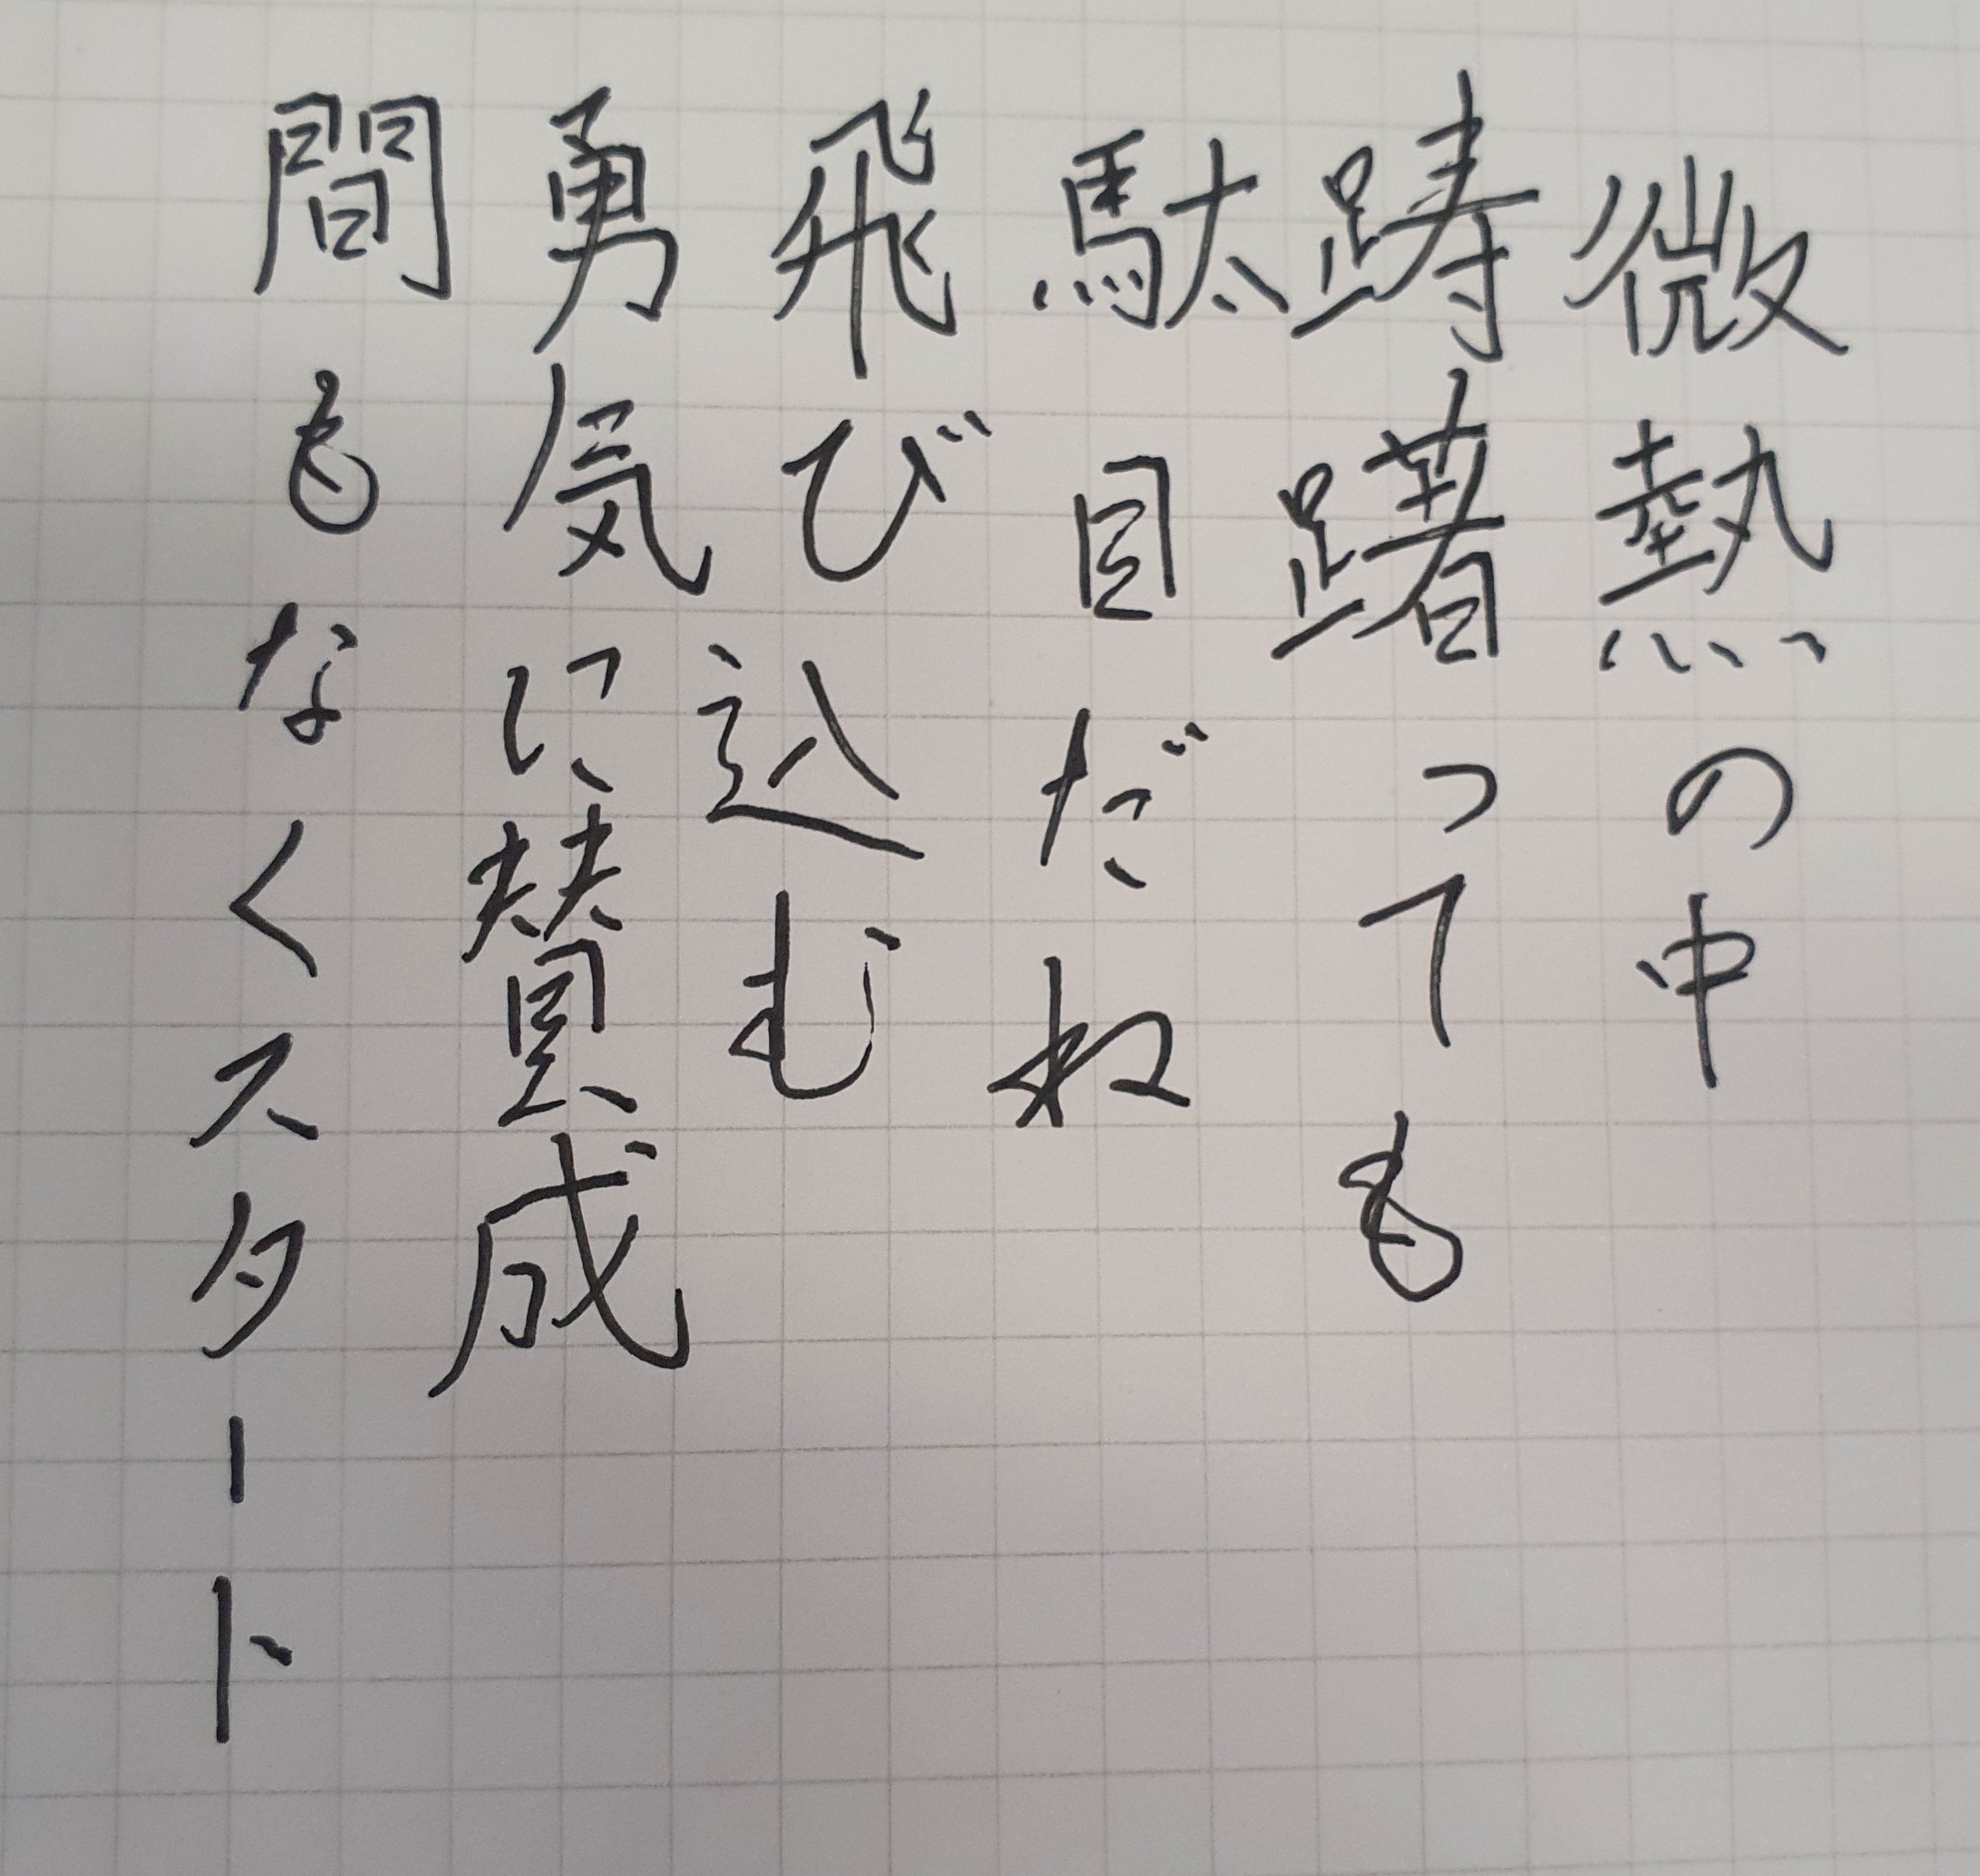 微熱の中
躊躇っても
駄目だね
飛び込む
勇気に賛成
間もなくスタート